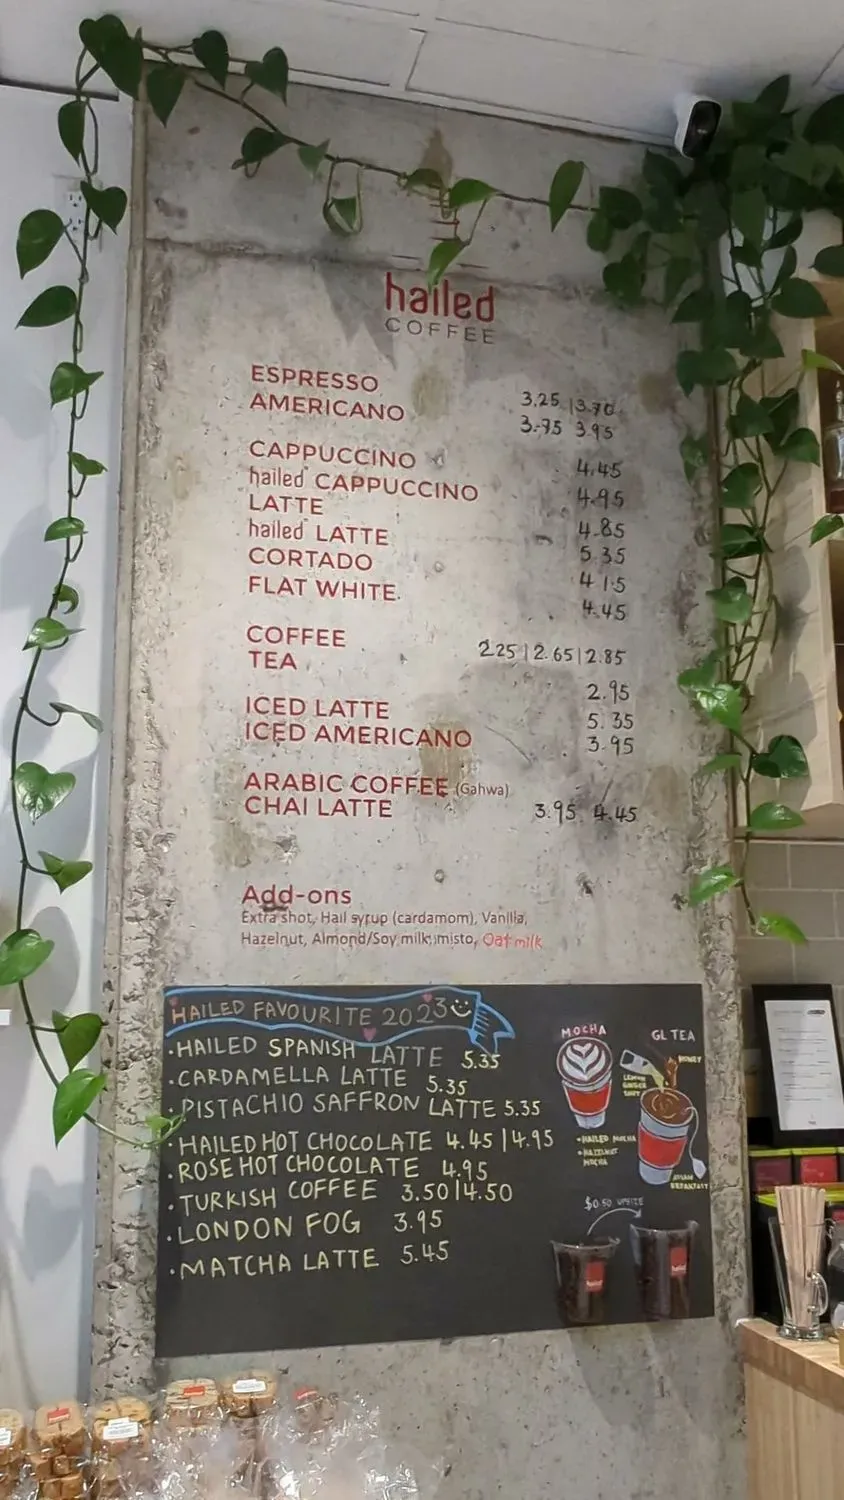 hailed
COFFEE
ESPRESSO 3.25 | 3.70
AMERICANO 3.75 3.95
CAPPUCCINO 4.45
hailed CAPPUCCINO 4.95
LATTE 4.85
hailed LATTE 5.35
CORTADO 4.15
FLAT WHITE 4.45
COFFEE 2.25 | 2.65 | 2.85
TEA 2.95
ICED LATTE 5.35
ICED AMERICANO 3.95
ARABIC COFFEE (Gahwa)
CHAI LATTE 3.95 4.45
Add-ons
Extra shot, Hail syrup (cardamom), Vanilla,
Hazelnut, Almond/Soy milk, misto, Oat milk
HAILED FAVOURITE 2023
•HAILED SPANISH LATTE 5.35
•CARDAMELLA LATTE 5.35
•PISTACHIO SAFFRON LATTE 5.35
•HAILED HOT CHOCOLATE 4.45 | 4.95
•ROSE HOT CHOCOLATE 4.95
•TURKISH COFFEE 3.50 | 4.50
•LONDON FOG 3.95
•MATCHA LATTE 5.45
MOCHA
•HAILED MOCHA
•HAZELNUT
MOCHA
GL TEA
HONEY
LEMON
GINGER
BREAKFAST
$0.50 UPSIZE
hailed
hailed